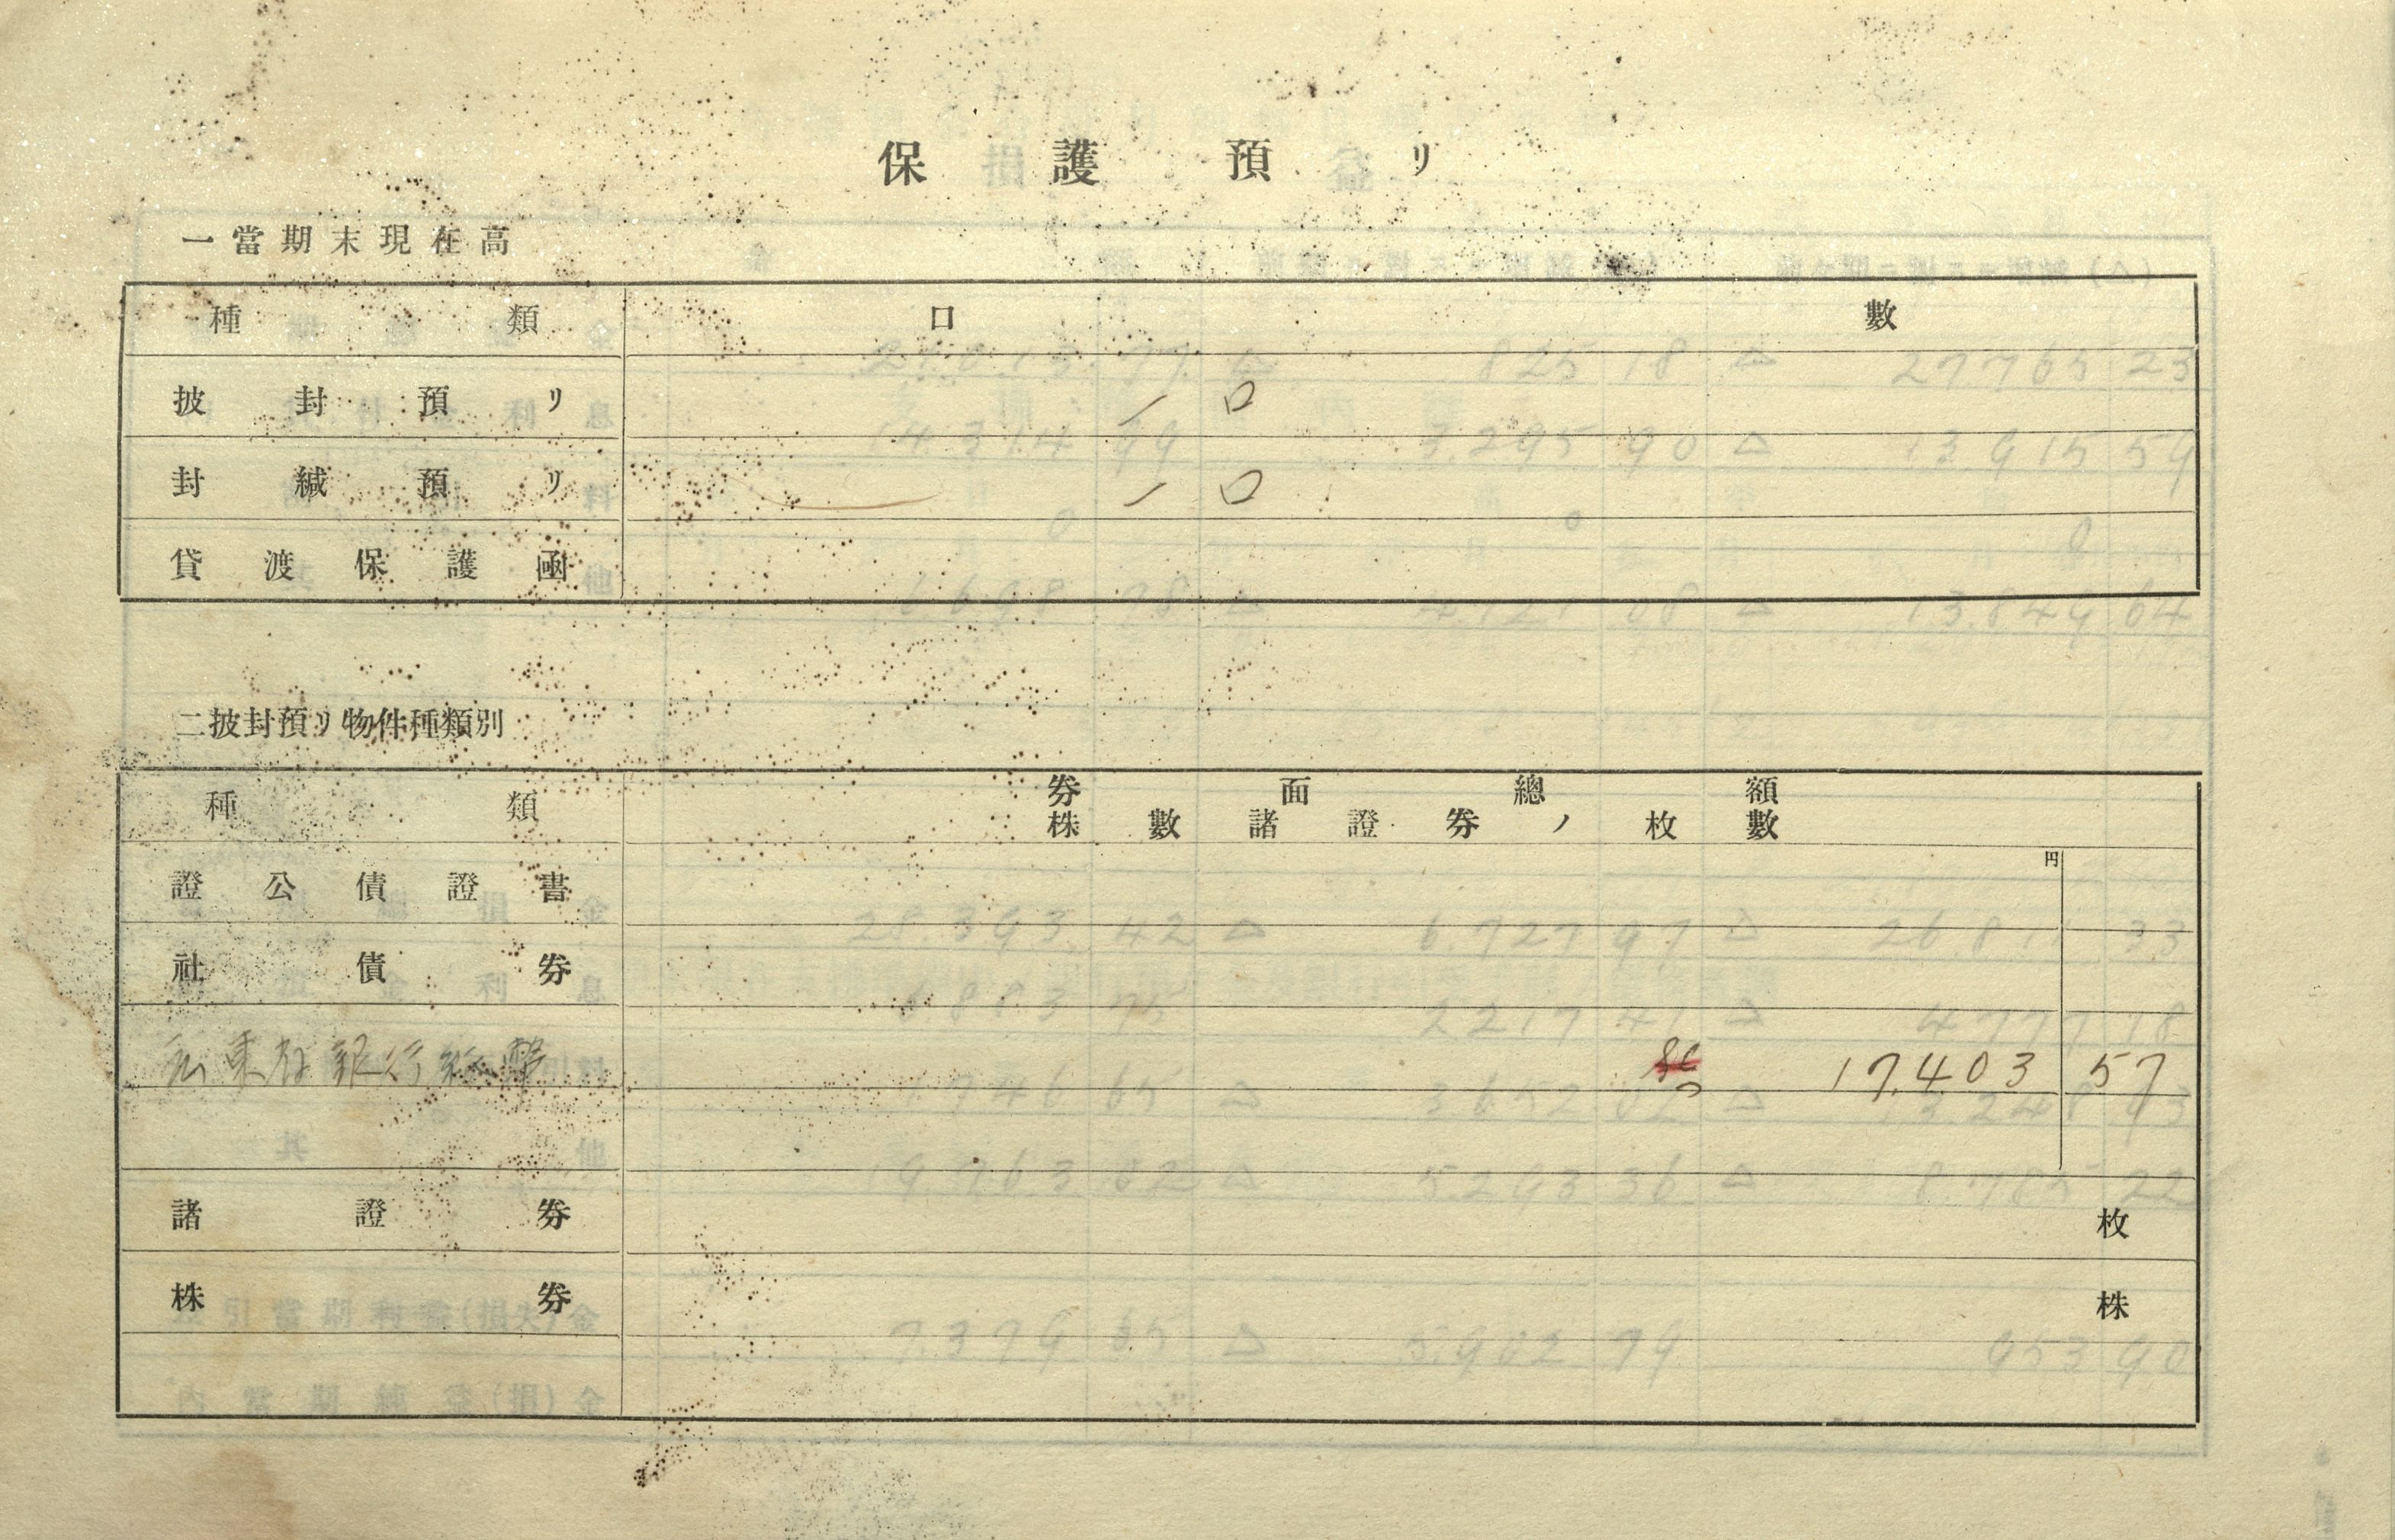 保護預リ
一當期末現在高
種類 口數
披封預リ 一口
封緘預リ 一口
貸渡保護凾
二披封預リ物件種類別
種類 券面總額
株數諸證券ノ枚數
円
證公債證書
社債券
広東省銀行紙幣 17.403 57
諸證券 枚
株券 株